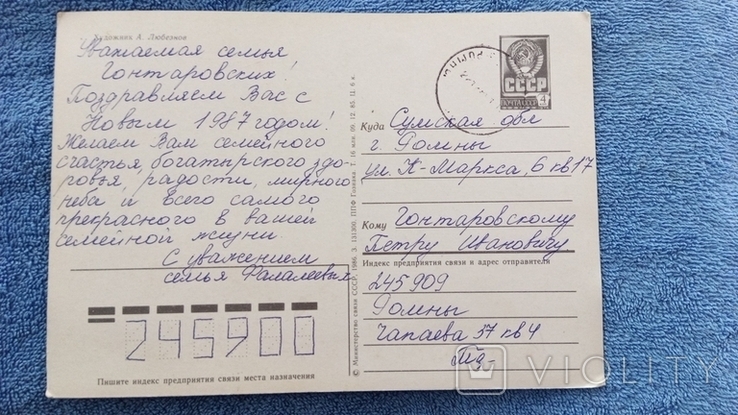 Художник А. Любезнов
Уважаемая семья
Гонтаровских!
Поздравляем Вас с
Новым 1987 годом!
Желаем Вам семейного
счастья, богатырского здо-
ровья, радости, мирного
неба и всего самого
прекрасного в вашей
семейной жизни.
С уважением
семья Фалалеевых
245900
Пишите индекс предприятия связи места назначения
© Министерство связи СССР, 1986. З. 131300. ППФ Гознака. Т. 16 млн. 09. 12. 85. Ц. 6 к.
РОМНЫ
СССР
ПОЧТА СССР
4
Куда Сумская обл
г. Ромны
ул. К-Маркса, 6 кв 17
Кому Гонтаровскому
Петру Ивановичу
Индекс предприятия связи и адрес отправителя
245909
Ромны
Чапаева 37 кв 4
VIOLITY